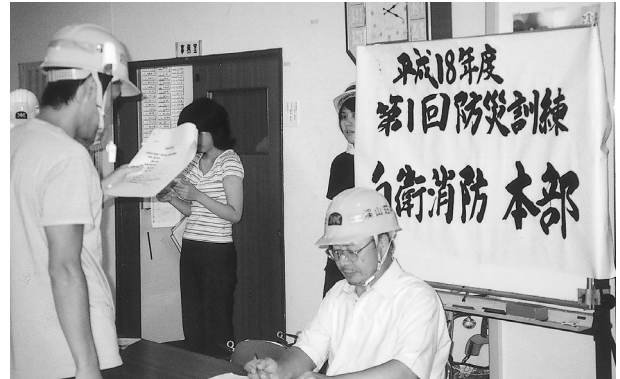 平成18年度
第1回防災訓練
自衛消防 本部